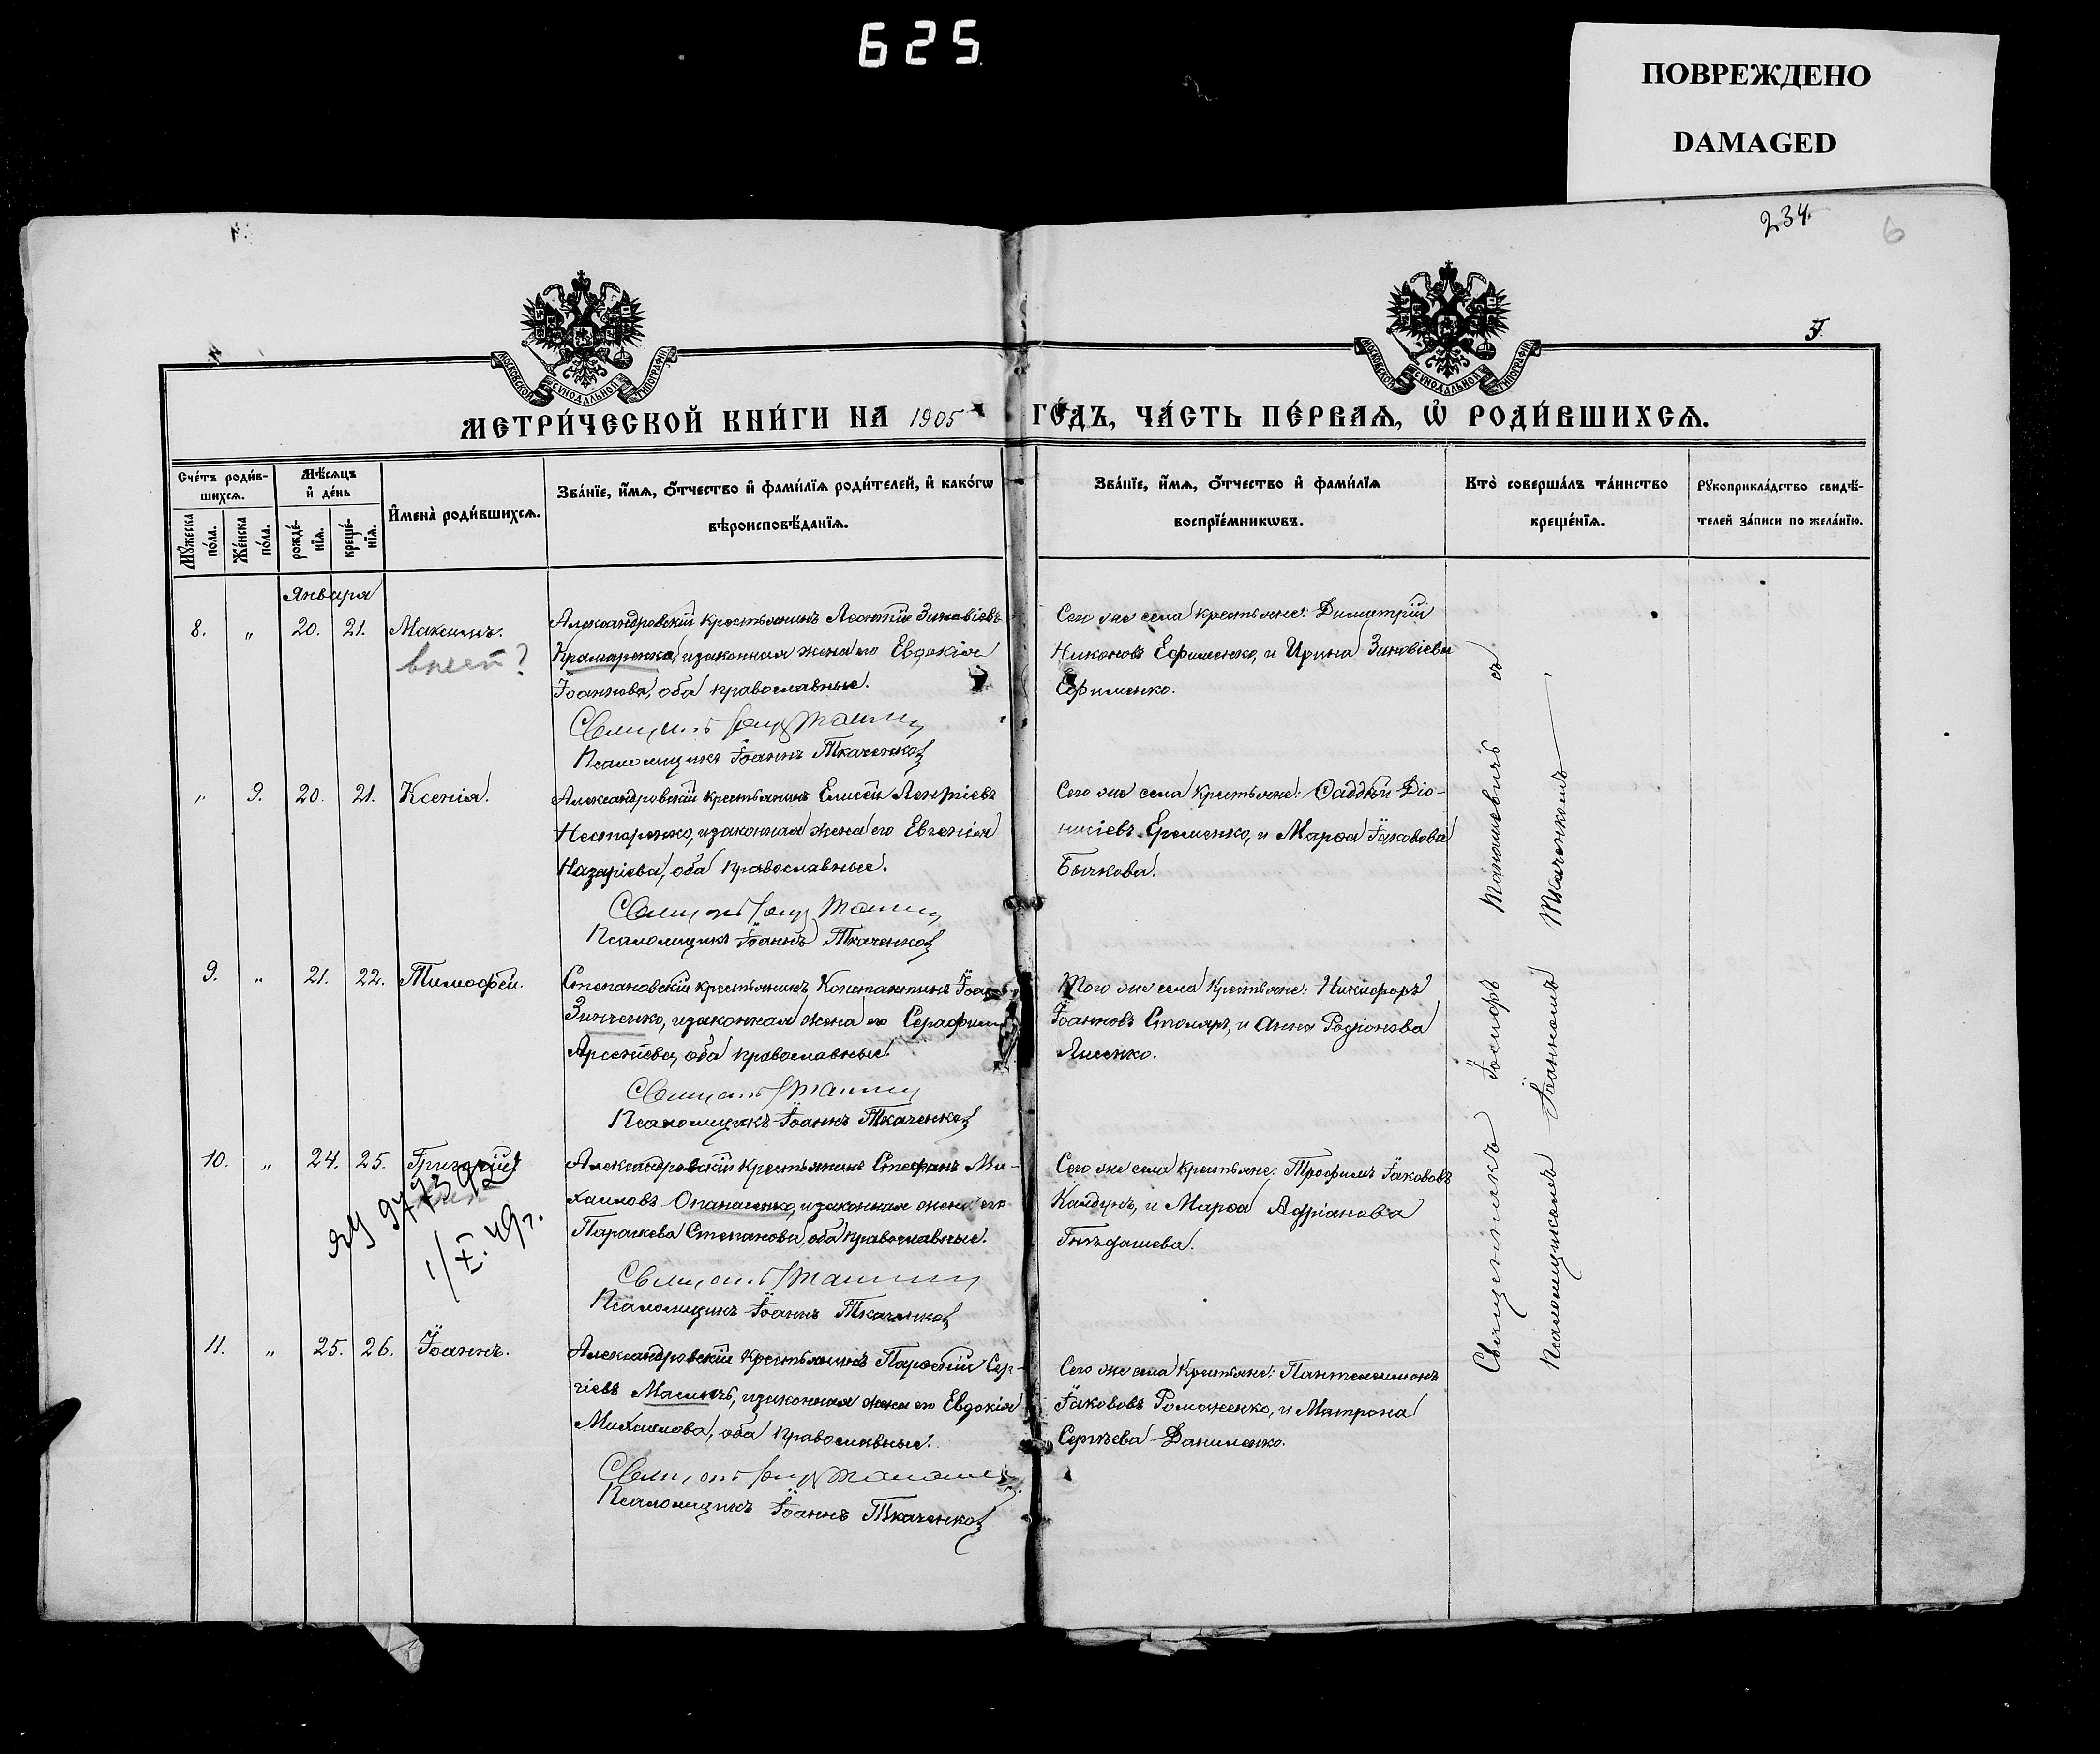 625
ПОВРЕЖДЕНО
DAMAGED
234.
6
МОСКОВСКОЙ СѴНОДАЛЬНОЙ ТИПОГРАФІИ
МОСКОВСКОЙ СѴНОДАЛЬНОЙ ТИПОГРАФІИ
МЕТРИ́ЧЕСКОЙ КНИ́ГИ НА 1905 ГО́ДЪ, ЧА́СТЬ ПЕ́РВАѦ, Ѡ҆ РОДИ́ВШИХСѦ.
Сче́тъ роди́в-
шихсѧ.
Мꙋ́жеска по́ла.
Же́нска по́ла.
Мѣ́сѧцъ
и҆ де́нь
рожде́-
нїѧ.
креще́-
нїѧ.
И҆мена̀ роди́вшихсѧ.
Зва́нїе, и҆́мѧ, ѻ҆́тчество и҆ фами́лїѧ роди́телей, и҆ како́гѡ
вѣроисповѣ́данїѧ.
Зва́нїе, и҆́мѧ, ѻ҆́тчество и҆ фами́лїѧ
воспрїе́мникѡвъ.
Кто̀ соверша́лъ та́инство
креще́нїѧ.
Рꙋкоприкла́дство свидѣ́-
телей за́писи по жела́нїю.
Января
8. „ 20. 21. Максимъ.
Александровскій крестьянинъ Леонтій Зиновіевъ
Крамаренко, и законная жена его Евдокія
Іоаннова, оба православные.
Псаломщикъ Іоаннъ Ткаченко
Сего же села крестьяне: Димитрій
Никоновъ Ефименко, и Ирина Зиновіева
Ефименко.
„ 9. 20. 21. Ксенія.
Александровскій крестьянинъ Елисей Леонтіевъ
Нестеренко, и законная жена его Евгенія
Назаріева, оба православные.
Псаломщикъ Іоаннъ Ткаченко
Сего же села крестьяне: Фаддей Діо-
нисіевъ Еременко, и Марѳа Іаковова
Бычкова.
9. „ 21. 22. Тимофей.
Степановскій крестьянинъ Константинъ
Зинченко, и законная жена его
Арсеніева, оба православные.
Псаломщикъ Іоаннъ Ткаченко
Того же села крестьяне: Никифоръ
Іоанновъ Столяръ, и Анна Родіонова
Лисенко.
10. „ 24. 25. Григорій
1/XI. 49г.
Александровскій крестьянинъ Стефанъ Ми-
хаиловъ Опанасенко, и законная жена его
Параскева Степанова, оба православные.
Псаломщикъ Іоаннъ Ткаченко
Сего же села крестьяне: Трофимъ Іакововъ
и Марѳа Адріанова
Гнѣдашева.
11. „ 25. 26. Іоаннъ.
Александровскій крестьянинъ Парфеній Сер-
гіевъ и законная жена его Евдокія
Михаилова, оба православные.
Псаломщикъ Іоаннъ Ткаченко
Сего же села крестьяне: Пантелеимонъ
Іакововъ Романенко, и Матрона
Сергѣева Даниленко.
Священникъ Іосифъ съ
Псаломщикомъ Іоанномъ Ткаченкомъ